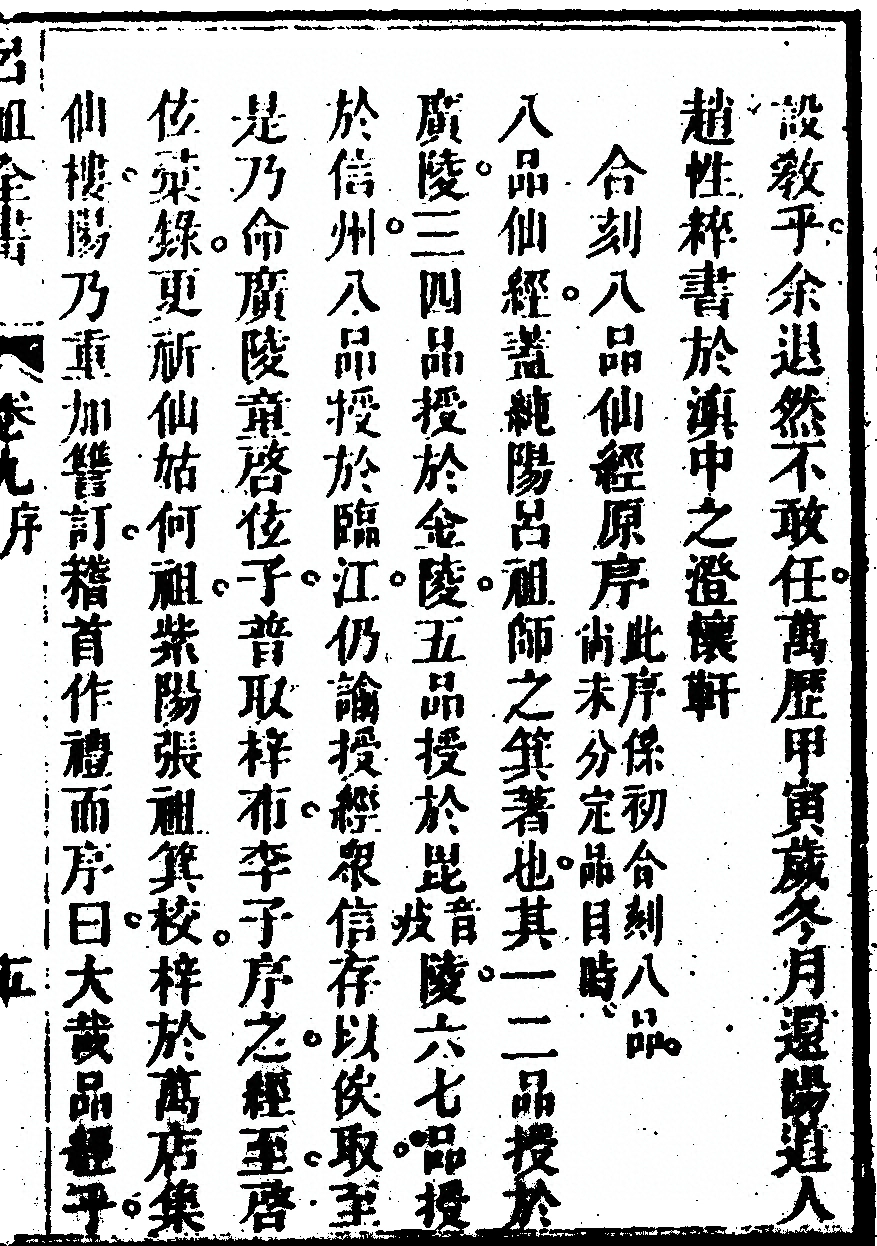 設教乎余退然不敢任萬歷甲寅歲冬月還陽道人
趙性粹書於滇中之澄懷軒
合刻八品仙經原序此序係初合刻八品尚未分定品目時
八品仙經蓋純陽呂祖師之箕著也其一二品授於
廣陵三四品授於金陵五品授於毘音疲陵六七品授
於信州八品授於臨江仍諭授經衆信存以俟取至
是乃命廣陵童啓伭子普取梓布李子序之經至啓
伭菜錄更祈仙姑何祖紫陽張祖箕校梓於萬店集
仙樓陽乃重加讐訂稽首作禮而序曰大哉品經乎
呂祖全書 卷九序 五